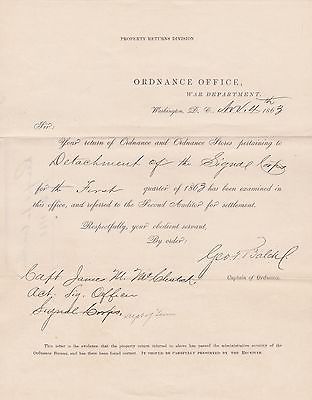 PROPERTY RETURNS DIVISION
ORDNANCE OFFICE,
WAR DEPARTMENT,
Washington, D. C., Nov. 4th 1863
Sir:
Your return of Ordnance and Ordnance Stores, pertaining to
Detachment of the Signal Corps
for the First quarter of 1863 has been examined in
this office, and referred to the Second Auditor for settlement.
Respectfully, your obedient servant,
By order:
Geo. T. Balch
Captain of Ordnance.
Capt James M.
Act. Sig. Officer
Signal Corps,
This letter is the evidence that the property return referred to above has passed the administrative scrutiny of the
Ordnance Bureau, and has there been found correct. IT SHOULD BE CAREFULLY PRESERVED BY THE RECEIVER